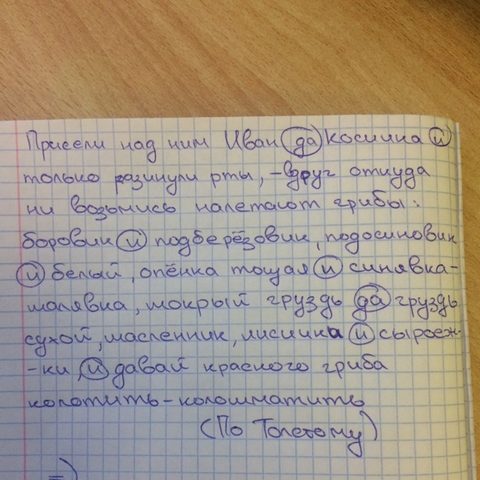 Присели над ним Иван да Косичка и
только разинули рты, - вдруг откуда
ни возьмись налетают грибы:
боровик и подберёзовик, подосиновик
и белый, опёнка тощая и синявка-
малявка, мокрый груздь да груздь
сухой, масленник, лисичка и сыроеж-
-ки, и давай красного гриба
колотить-колошматить
(По Толстому)
=)